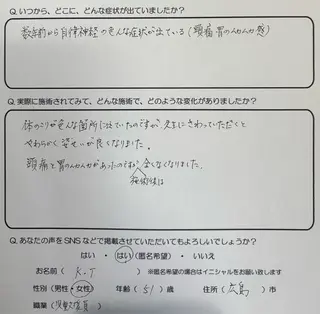 Q. いつから、どこに、どんな症状が出ていましたか?
数年前から自律神経の色んな症状が出ている(頭痛 胃のムカムカ感)
Q. 実際に施術されてみて、どんな施術で、どのような変化がありましたか?
体のこりが色んな箇所に出ていたのですが、先生にさわっていただくと
やわらかく 姿せいが良くなりました。
頭痛と胃のムカムカがあったのですが 全くなくなりました。
施術後は
Q. あなたの声をSNSなどで掲載させていただいてもよろしいでしょうか?
はい ・ はい(匿名希望) ・ いいえ
お名前 ( K.T ) ※匿名希望の場合はイニシャルをお願い致します
性別 (男性・女性) 年齢 ( 51 ) 歳 住所 ( 広島 ) 市
職業 ( )